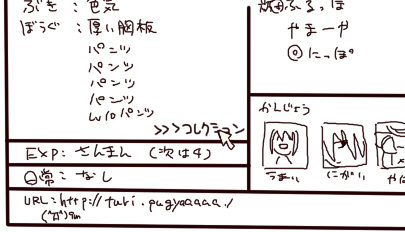 ぶき：色気
ぼうぐ：厚い胸板
パンツ
パンツ
パンツ
パンツ
W10パンツ
>>>コレクション
EXP：さんまん（次は4）
日常：なし
URL：http://turi.pugyaaaaa./
(^Д^)9m
やまーや
◎にっぽ
かんじょう
うまい
にがい